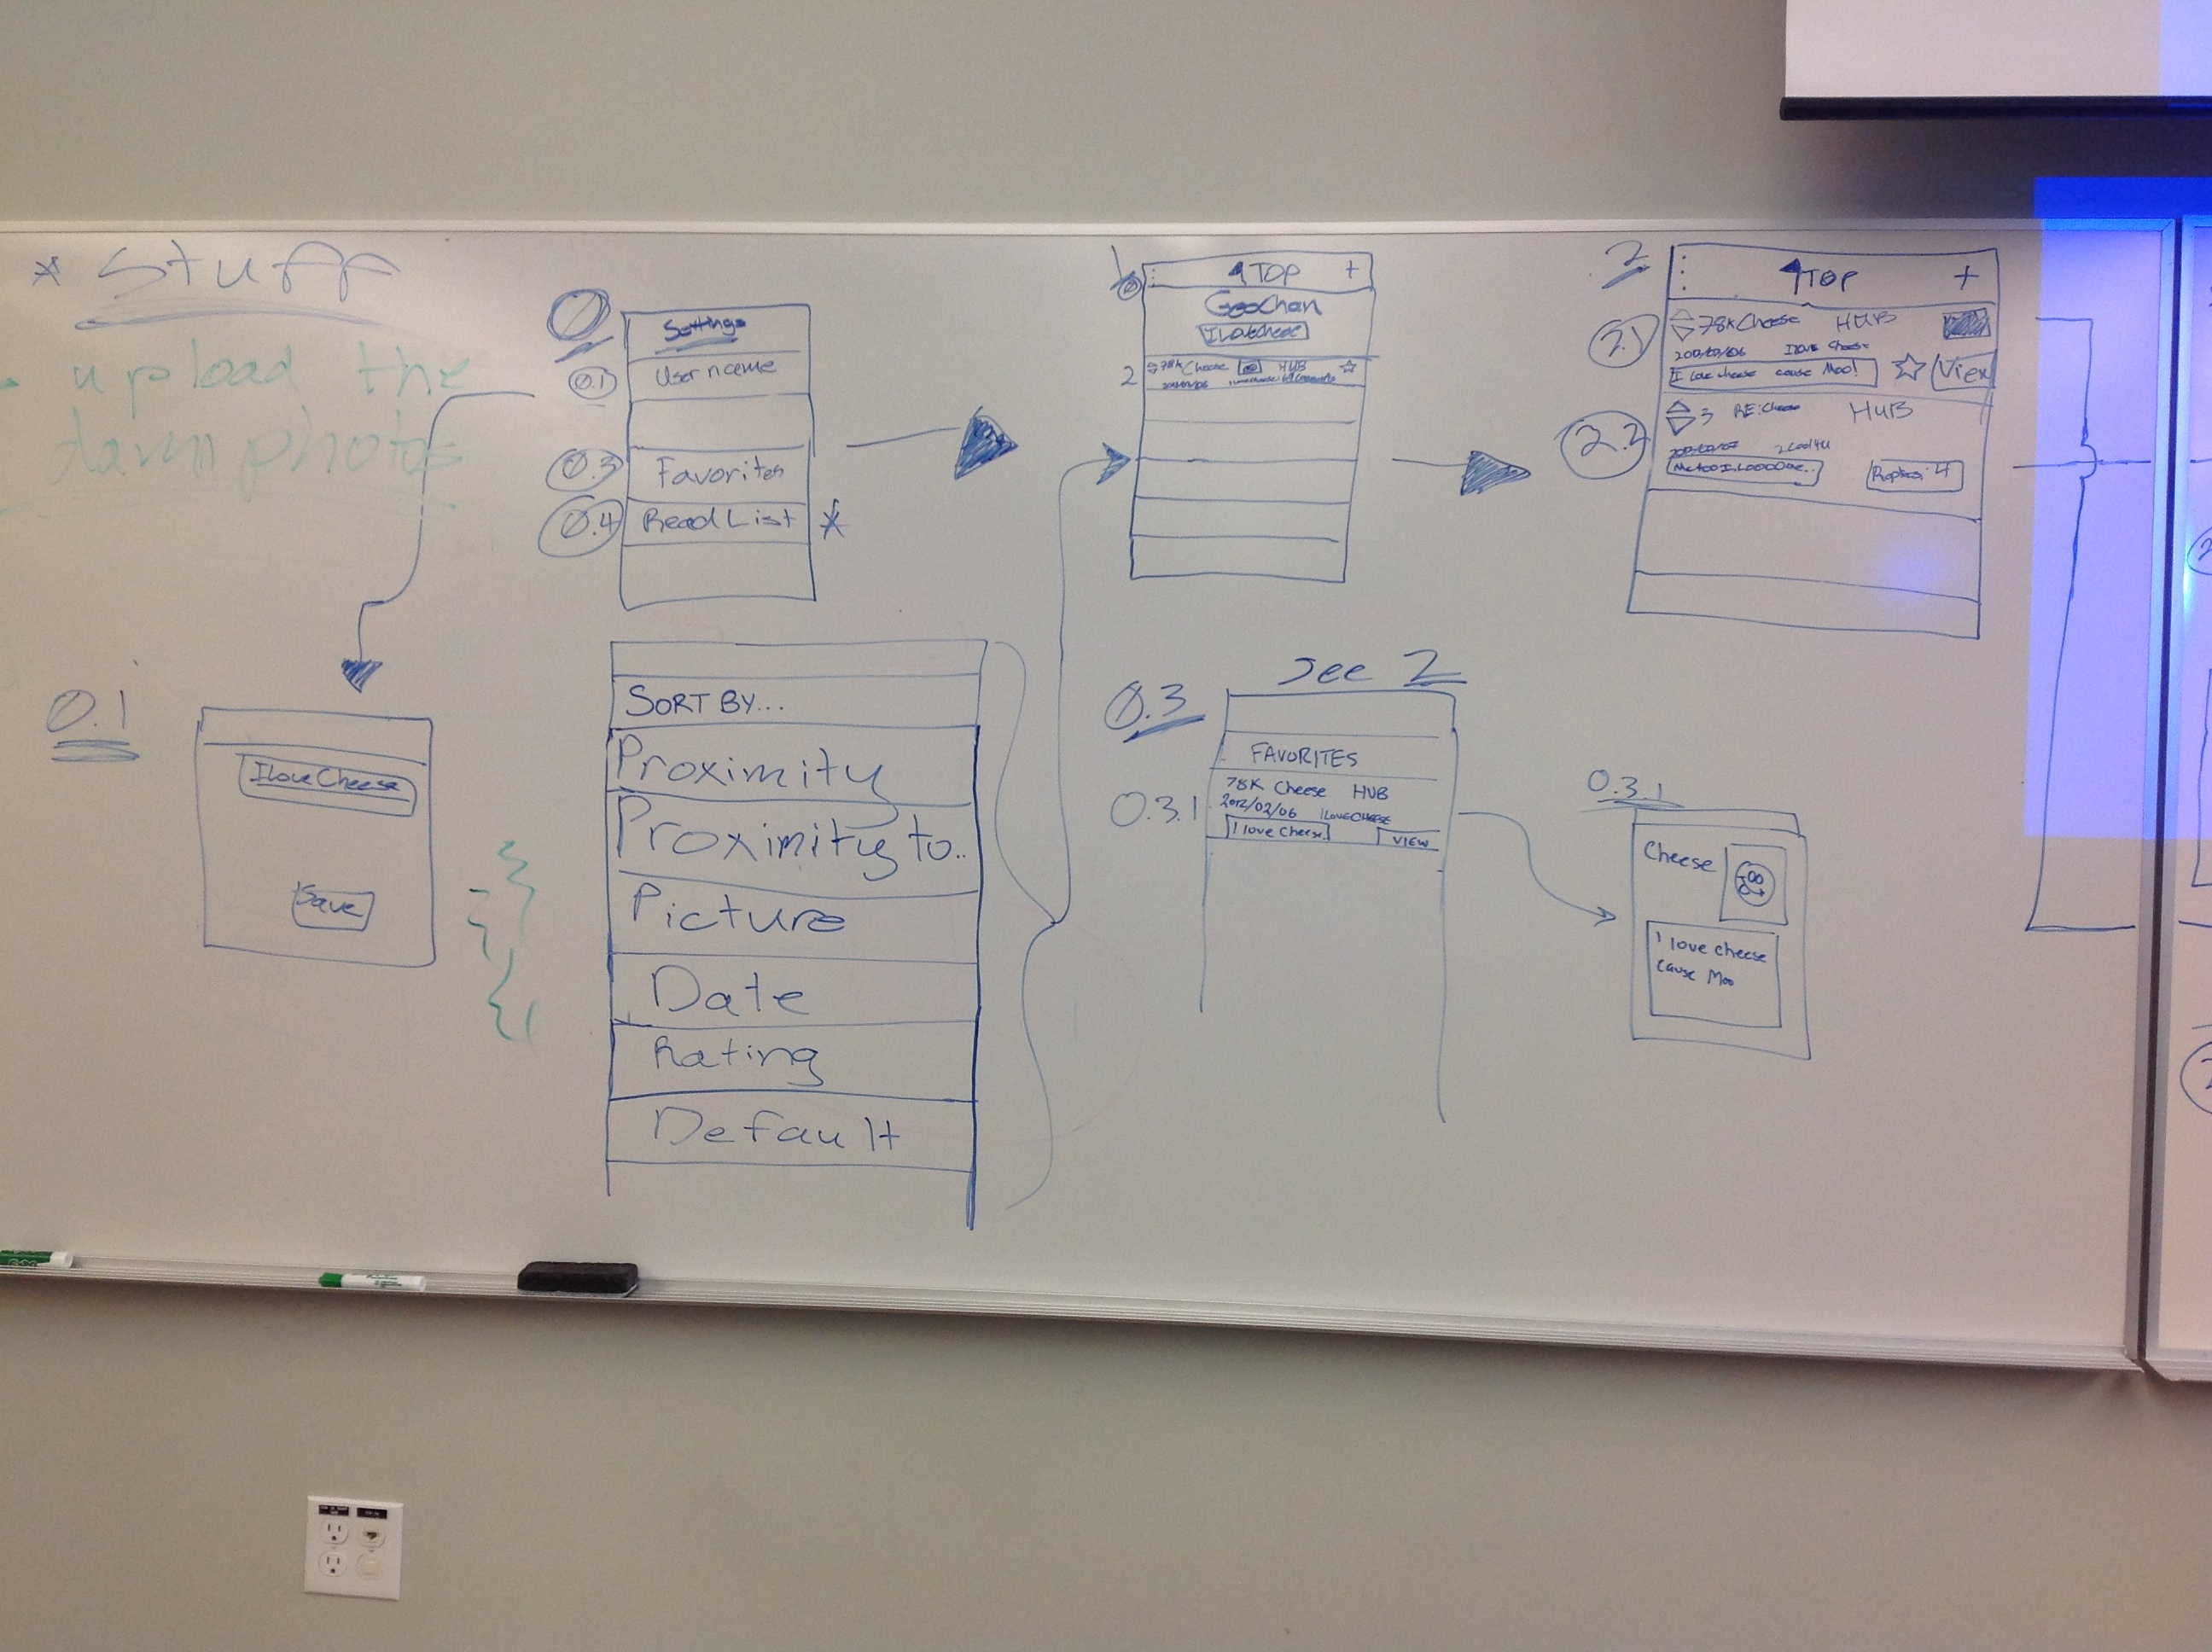 * Stuff
- upload the
damn photos
0
Settings
0.1 Username
0.3 Favorites
0.4 Read List *
0.1
ILoveCheese
Save
SORT BY...
Proximity
Proximity to..
Picture
Date
Rating
Default
1
TOP +
GeoChan
ILoveCheese
2 78k Cheese HUB
2
TOP +
2.1 78k Cheese HUB
I love cheese cause Moo! View
2.2 3 RE: Cheese HUB
2Cool4U
Replies: 4
See 2
0.3
FAVORITES
78K Cheese HUB
0.3.1 2012/02/06 ILOVECHEESE
I love Cheese. VIEW
0.3.1
Cheese
I love cheese
cause Moo